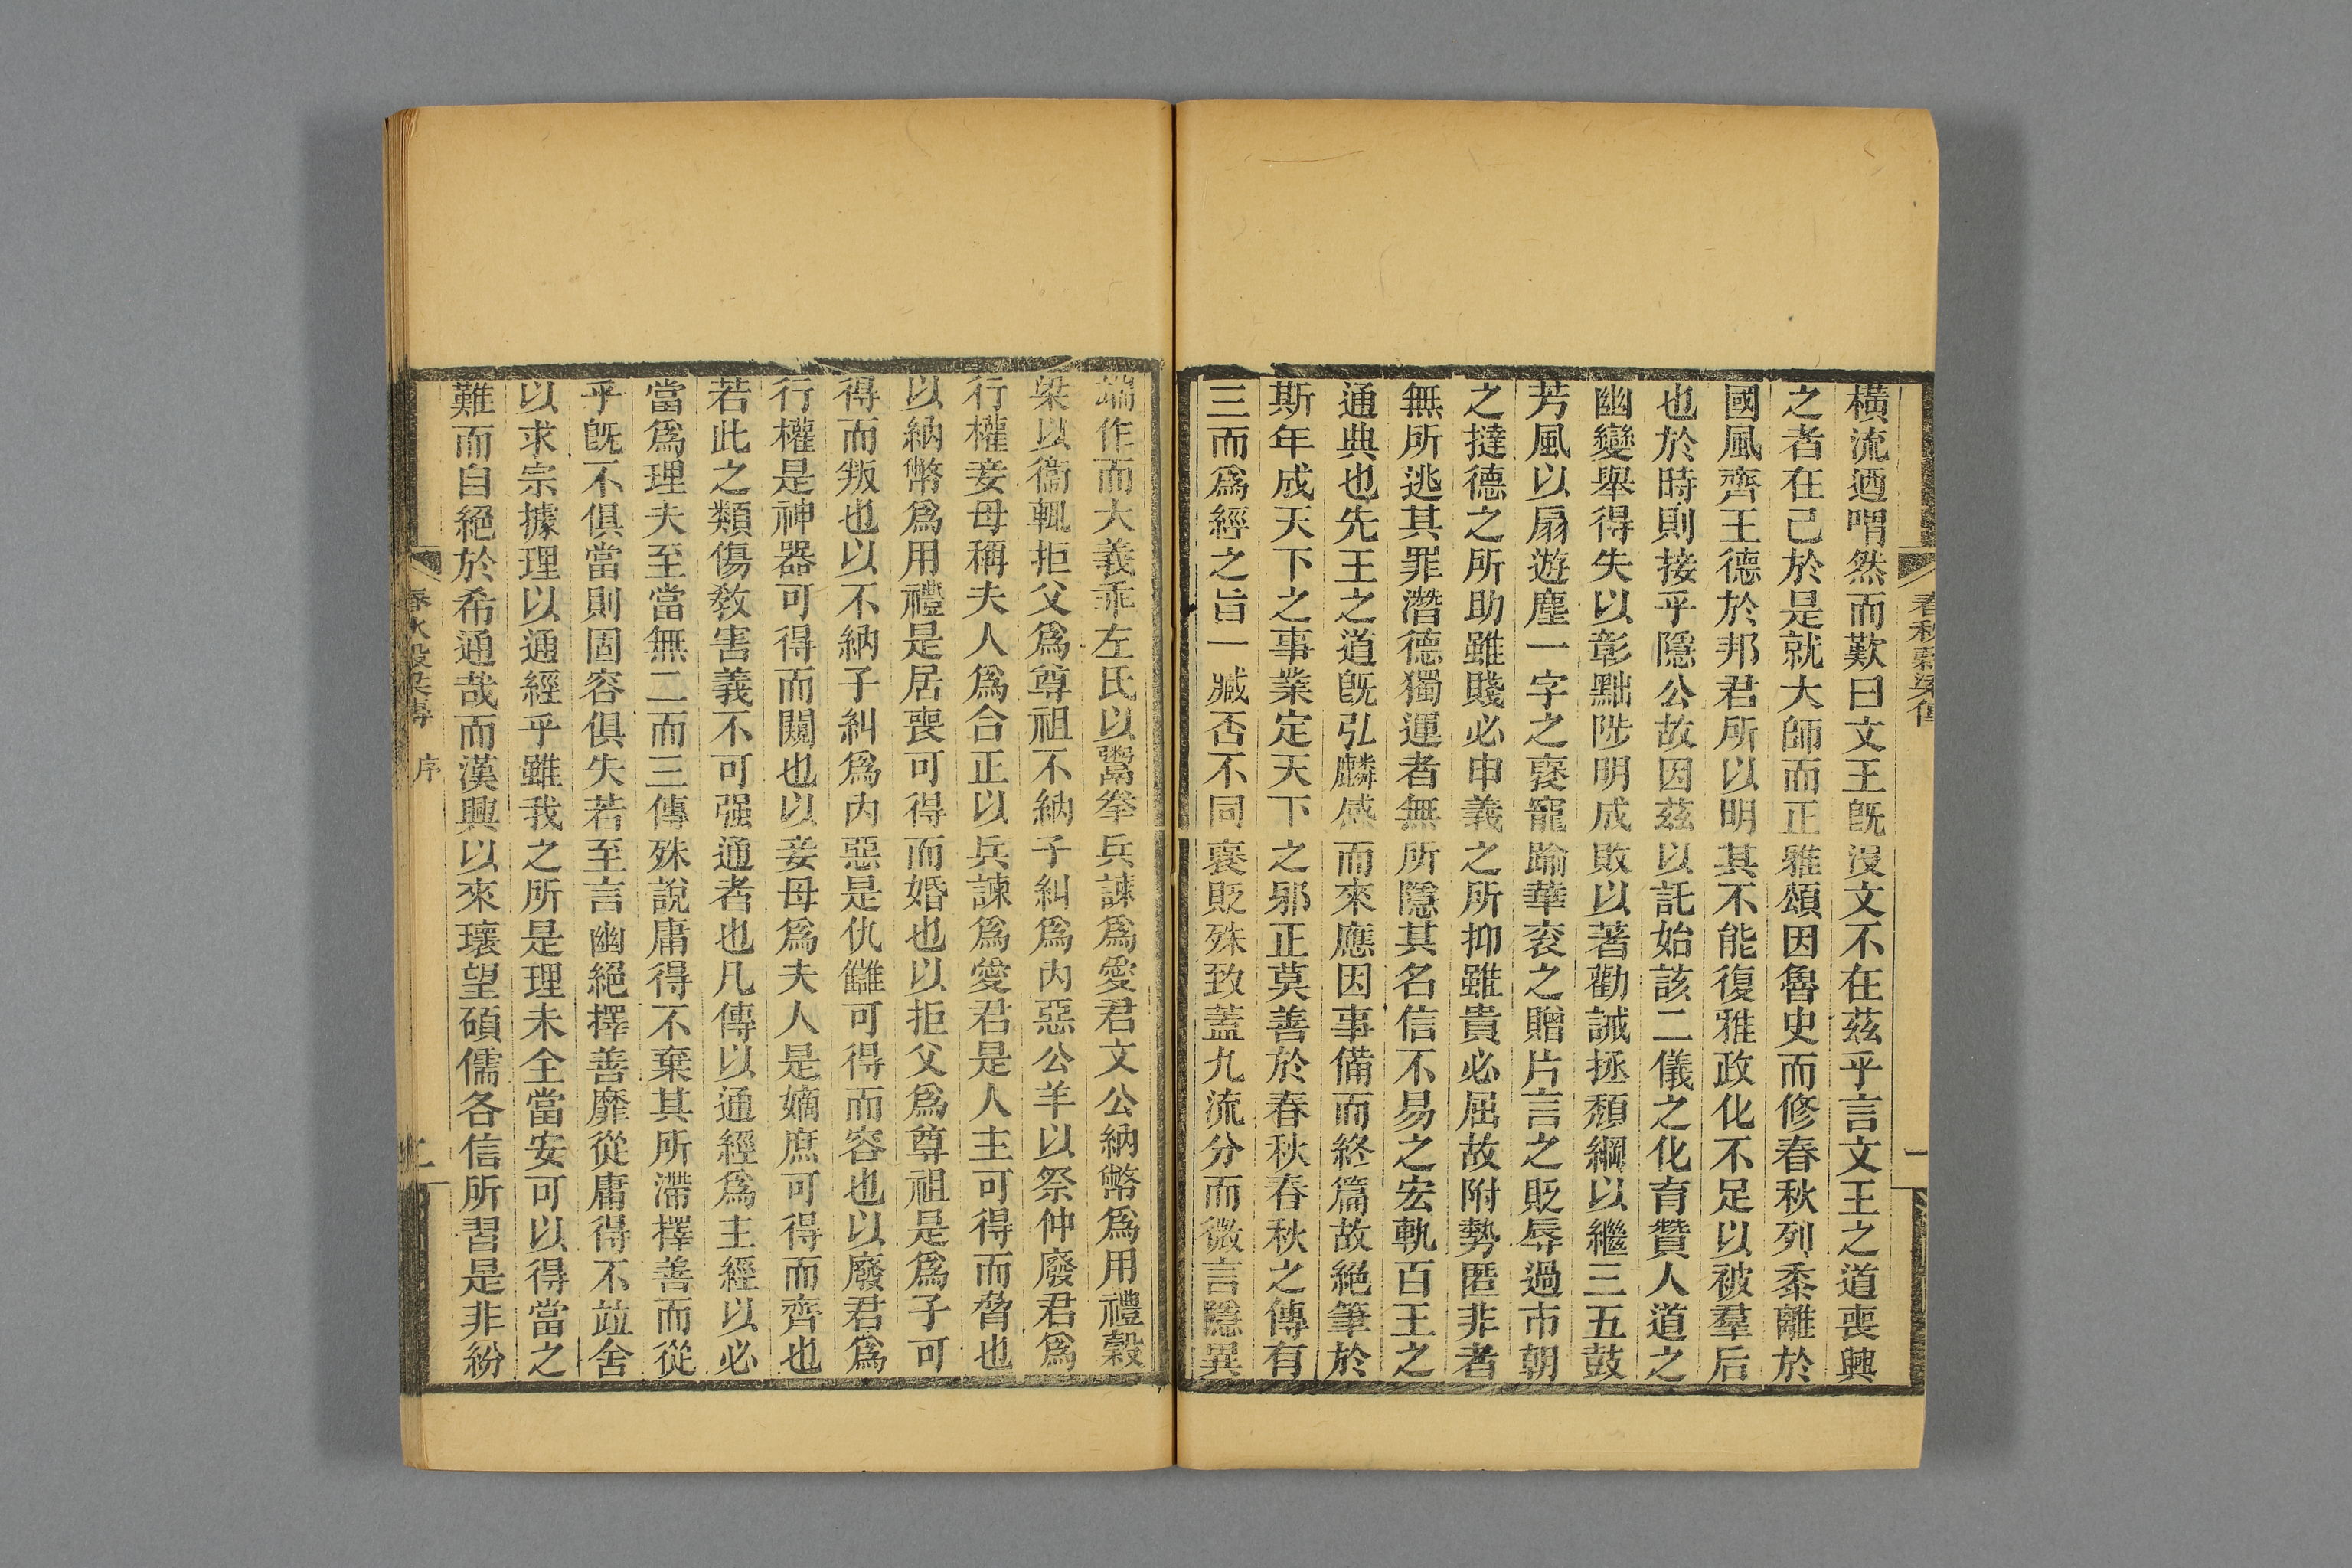 春秋穀梁傳
一
橫流迺喟然而歎曰文王旣沒文不在茲乎言文王之道喪興
之者在己於是就大師而正雅頌因魯史而修春秋列黍離於
國風齊王德於邦君所以明其不能復雅政化不足以被羣后
也於時則接乎隱公故因茲以託始該二儀之化育贊人道之
幽變舉得失以彰黜陟明成敗以著勸誡拯頹綱以繼三五鼓
芳風以扇遊塵一字之褒寵踰華衮之贈片言之貶辱過市朝
之撻德之所助雖賤必申義之所抑雖貴必屈故附勢匿非者
無所逃其罪潛德獨運者無所隱其名信不易之宏軌百王之
通典也先王之道旣弘麟感而來應因事備而終篇故絕筆於
斯年成天下之事業定天下之邪正莫善於春秋春秋之傳有
三而爲經之旨一臧否不同襃貶殊致蓋九流分而微言隱異
端作而大義乖左氏以鬻拳兵諫爲愛君文公納幣爲用禮穀
梁以衞輒拒父爲尊祖不納子糾爲內惡公羊以祭仲廢君爲
行權妾母稱夫人爲合正以兵諫爲愛君是人主可得而脅也
以納幣爲用禮是居喪可得而婚也以拒父爲尊祖是爲子可
得而叛也以不納子糾爲內惡是仇讎可得而容也以廢君爲
行權是神器可得而闚也以妾母爲夫人是嫡庶可得而齊也
若此之類傷敎害義不可强通者也凡傳以通經爲主經以必
當爲理夫至當無二而三傳殊說庸得不棄其所滯擇善而從
乎旣不俱當則固容俱失若至言幽絕擇善靡從庸得不竝舍
以求宗據理以通經乎雖我之所是理未全當安可以得當之
難而自絕於希通哉而漢興以來瓌望碩儒各信所習是非紛
春秋穀梁傳 序
二